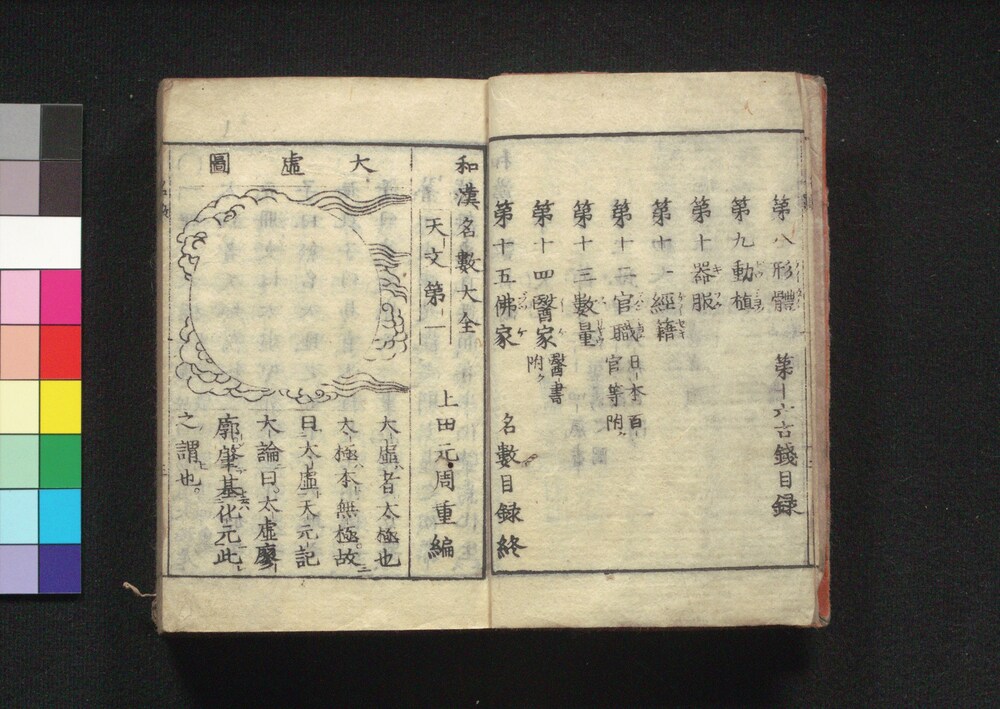 第八形體
第九動植
第十器服
第十一經籍
第十二官職 日本百官等附
第十三數量
第十四醫家 醫書附
第十五佛家
第十六古錢目録
名數目録終
和漢名數大全
上田元周重編
天文第一
大虚圖
大虚者太極也
太極本無極故
曰太虚天元記
大論曰太虚廖
廓肇基化元此
之謂也。